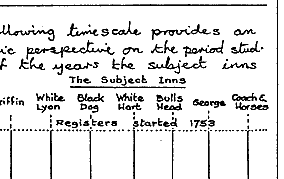 llowing timescale provides an
ic perspective on the period stud-
f the years the subject inns
The Subject Inns
riffin White Lyon Black Dog White Hart Bulls Head George Coach & Horses
Registers started 1753